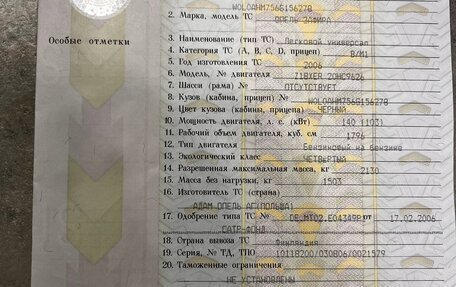 WOLOAHM756G156278
2. Марка, модель ТС ОПЕЛЬ ЗАФИРА
Особые отметки
3. Наименование (тип ТС) Легковой универсал
4. Категория ТС (A, B, C, D, прицеп) B/M1
5. Год изготовления ТС 2006
6. Модель, № двигателя Z18XER 20HC9626
7. Шасси (рама) № ОТСУТСТВУЕТ
8. Кузов (кабина, прицеп) № WOLOAHM756G156278
9. Цвет кузова (кабины, прицепа) ЧЕРНЫЙ
10. Мощность двигателя, л. с. (кВт) 140 (103)
11. Рабочий объем двигателя, куб. см 1796
12. Тип двигателя Бензиновый на бензине
13. Экологический класс ЧЕТВЕРТЫЙ
14. Разрешенная максимальная масса, кг 2130
15. Масса без нагрузки, кг 1503
16. Изготовитель ТС (страна)
АДАМ ОПЕЛЬ АГ(ПОЛЬША)
17. Одобрение типа ТС № DE.MT02.E04349P от 17.02.2006
САТР-ФОНД
18. Страна вывоза ТС Финляндия
19. Серия, № ТД, ТПО 10118200/030806/0021579
20. Таможенные ограничения
НЕ УСТАНОВЛЕНЫ